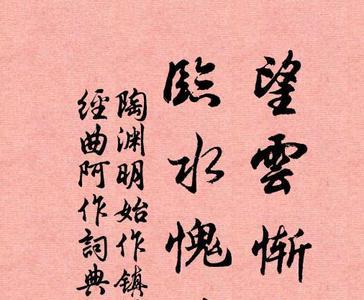 望雲慚
臨水愧
陶渊明始作镇
經曲阿作詞典